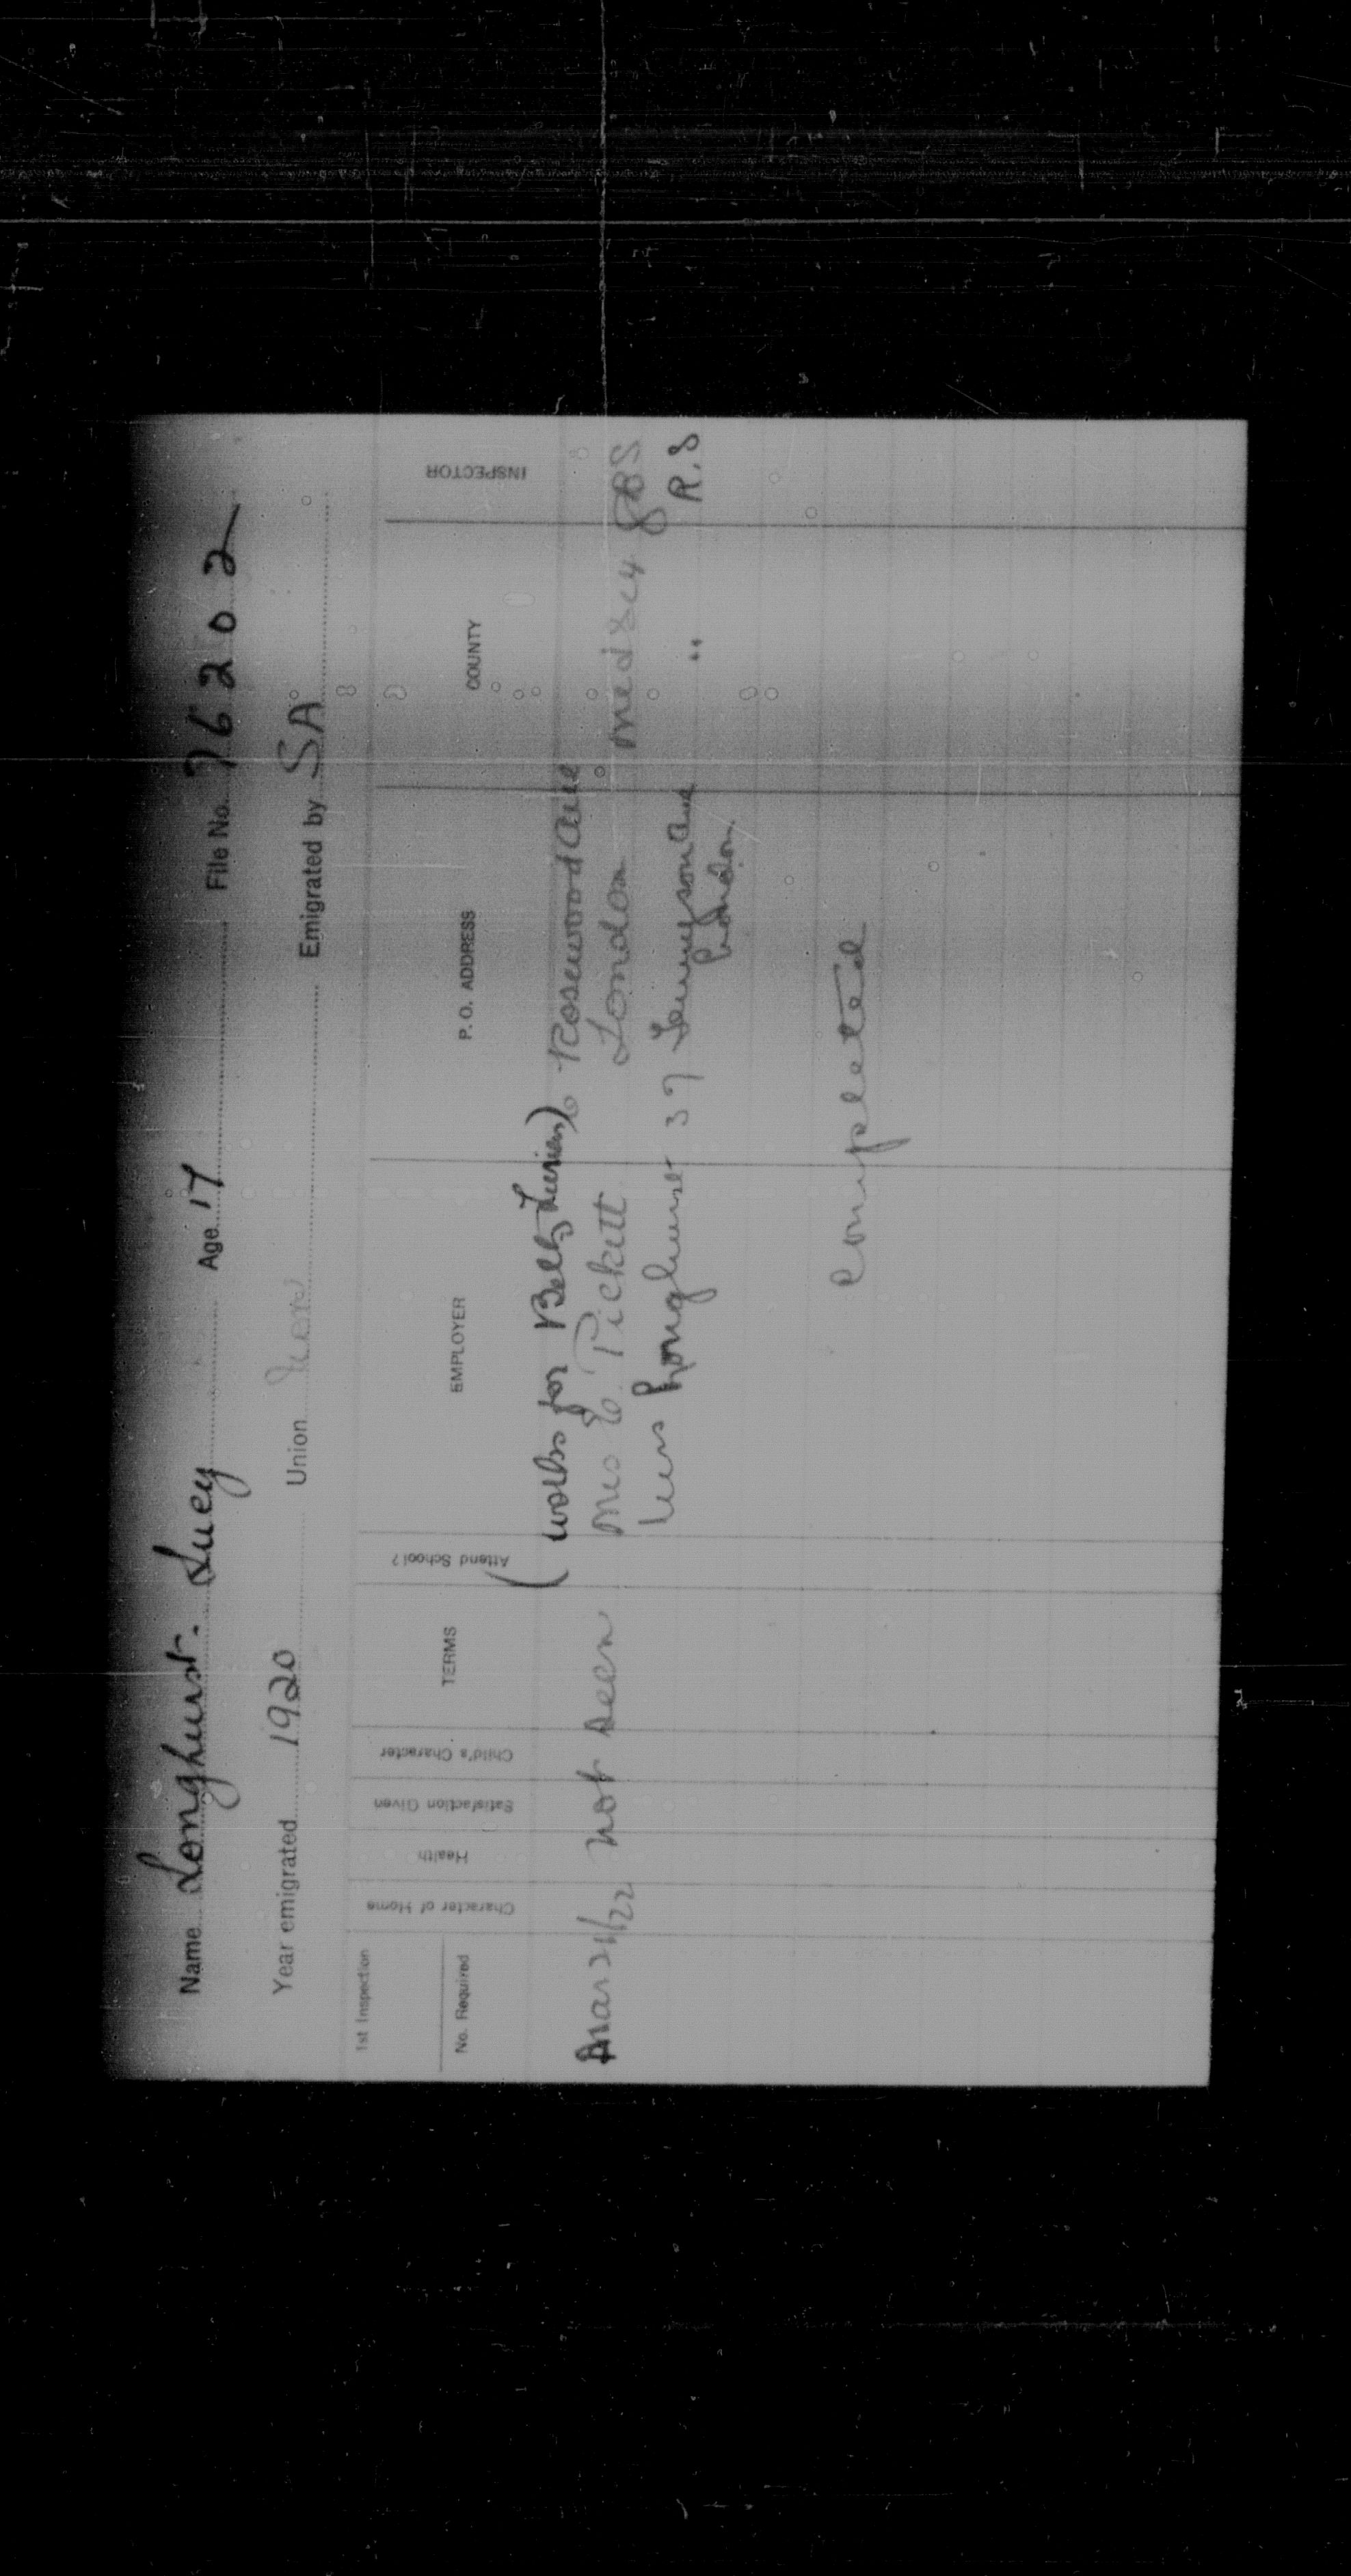 Name Longhurst. Lucy Age 17 File No. 76202
Year emigrated 1920 Union Non Emigrated by SA
1st Inspection
No. Required Character of Home Health Satisfaction Given Child's Character TERMS Attend School? EMPLOYER P. O. ADDRESS COUNTY INSPECTOR
(works for Bell, ) 6 Rosewood Ave
Mar 21/22 Not seen Mrs E. Pickett London Medsex
Mrs Longhurst 37 Tennyson Ave " R.S
London
Completed